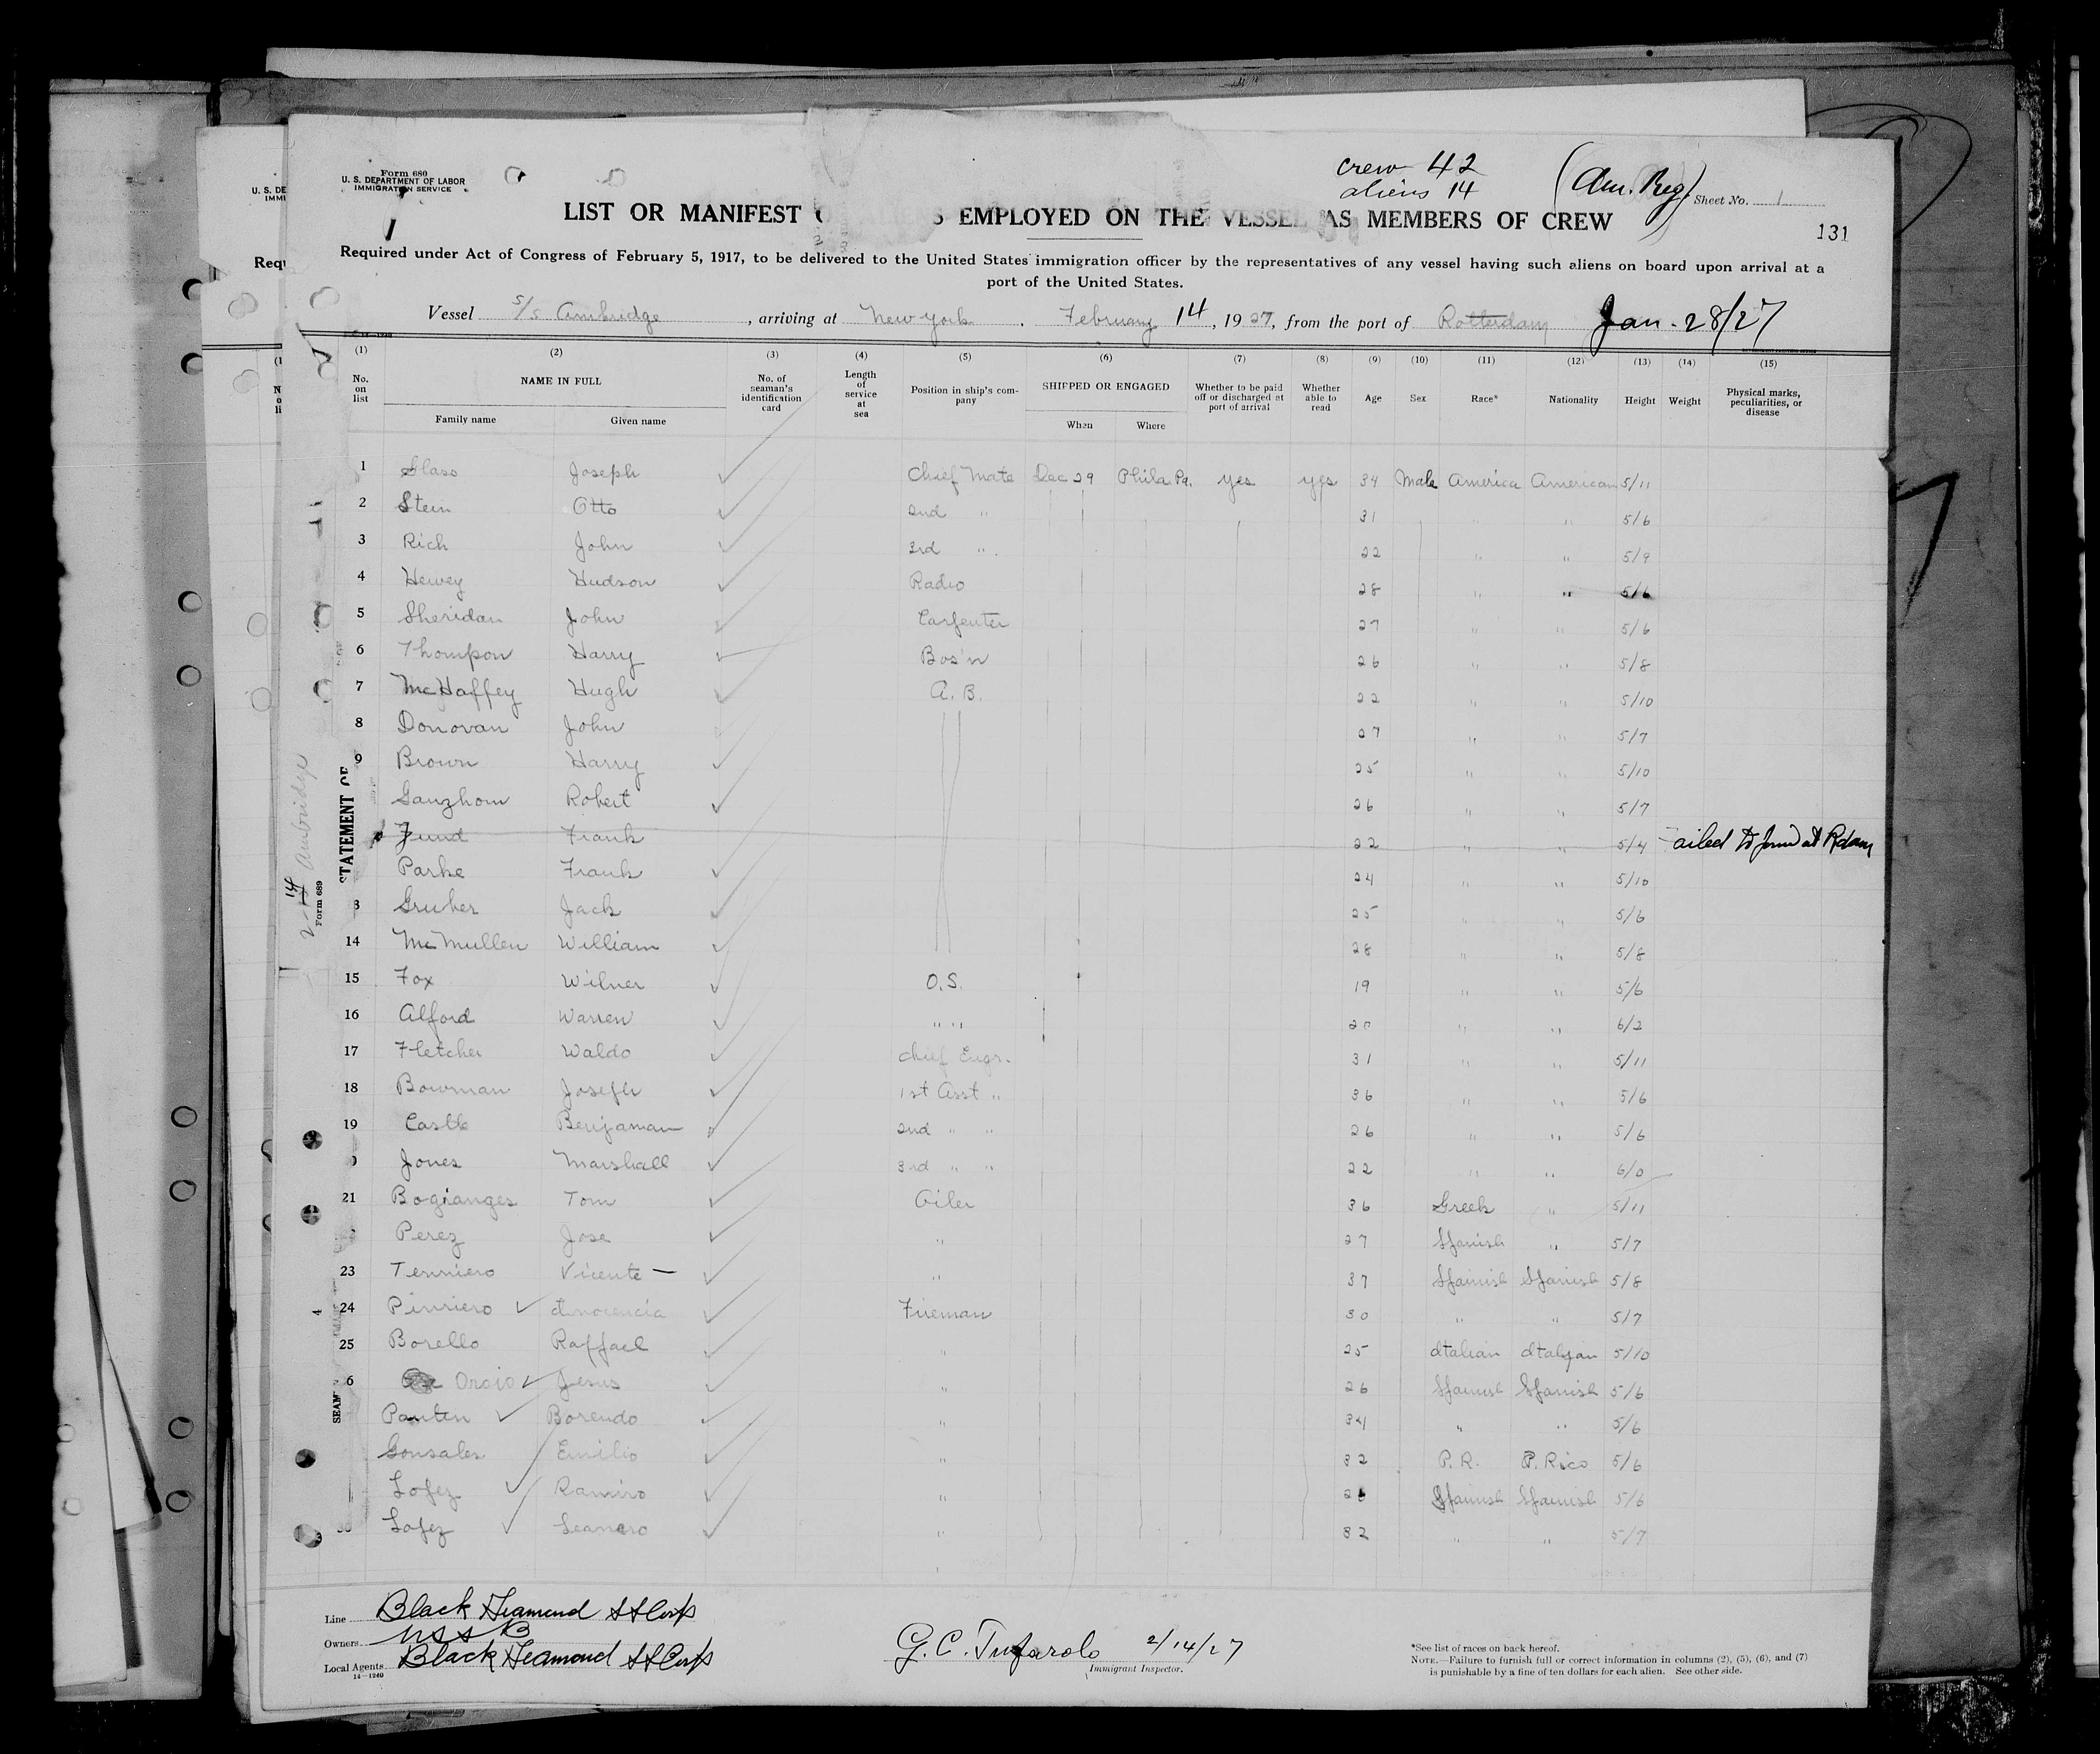 crew 42
aliens 14
(Am. Reg)
Form 680
U. S. DEPARTMENT OF LABOR
IMMIGRATION SERVICE
Sheet No. 1
LIST OR MANIFEST EMPLOYED ON THE VESSEL AS MEMBERS OF CREW
131
Required under Act of Congress of February 5, 1917, to be delivered to the United States immigration officer by the representatives of any vessel having such aliens on board upon arrival at a
port of the United States.
Vessel S/S Ambridge, arriving at New York, February 14, 1927, from the port of Rotterdam Jan. 28/27
(1) (2) (3) (4) (5) (6) (7) (8) (9) (10) (11) (12) (13) (14) (15)
No. on list NAME IN FULL No. of seaman's identification card Length of service at sea Position in ship's company SHIPPED OR ENGAGED Whether to be paid off or discharged at port of arrival Whether able to read Age Sex Race* Nationality Height Weight Physical marks, peculiarities, or disease
Family name Given name When Where
1 Glass Joseph Chief Mate Dec 29 Phila. Pa. yes yes 34 Male America American 5/11
2 Stein Otto 2nd " 31 " " 5/6
3 Rich John 3rd " 22 " " 5/9
4 Hewey Hudson Radio 28 " " 5/6
5 Sheridan John Carpenter 27 " " 5/6
6 Thompson Harry Bos'n 26 " " 5/8
7 McHaffey Hugh A. B. 22 " " 5/10
8 Donovan John 27 " " 5/7
9 Brown Harry 25 " " 5/10
Ganzhorn Robert 26 " " 5/7
Fund Frank 22 " " 5/4 ailed to join at Rdam
Parke Frank 24 " " 5/10
3 Gruber Jack 25 " " 5/6
14 McMullen William 28 " " 5/8
15 Fox Wilner O.S. 19 " " 5/6
16 Alford Warren " " 20 " " 6/2
17 Fletcher Waldo Chief Engr. 31 " " 5/11
18 Bowman Joseph 1st Asst " 36 " " 5/6
19 Castle Benjaman 2nd " " 26 " " 5/6
Jones Marshall 3rd " " 22 " " 6/0
21 Bogianges Tom Oiler 36 Greek " 5/11
Perez Jose " 27 Spanish " 5/7
23 Tenniero Vicente " 37 Spanish Spanish 5/8
24 Pinriero Inocencia Fireman 30 " " 5/7
25 Borello Raffael " 25 Italian Italian 5/10
6 Oroio Jesus " 26 Spanish Spanish 5/6
Panten Borendo " 34 " " 5/6
Gonsales Emilio " 32 P.R. P. Rico 5/6
Lopez Ramiro " Spanish Spanish 5/6
30 Lopez Leandro " 32 " " 5/7
Ambridge
2-14
Form 689
STATEMENT OF
SEAM
Line Black Diamond SS Corp
Owners USSB
Local Agents Black Diamond SS Corp
14—1240
G. C. Tufarolo 2/14/27
Immigrant Inspector.
*See list of races on back hereof.
NOTE.—Failure to furnish full or correct information in columns (2), (5), (6), and (7)
is punishable by a fine of ten dollars for each alien. See other side.
U. S. DE
IMMI
Requ